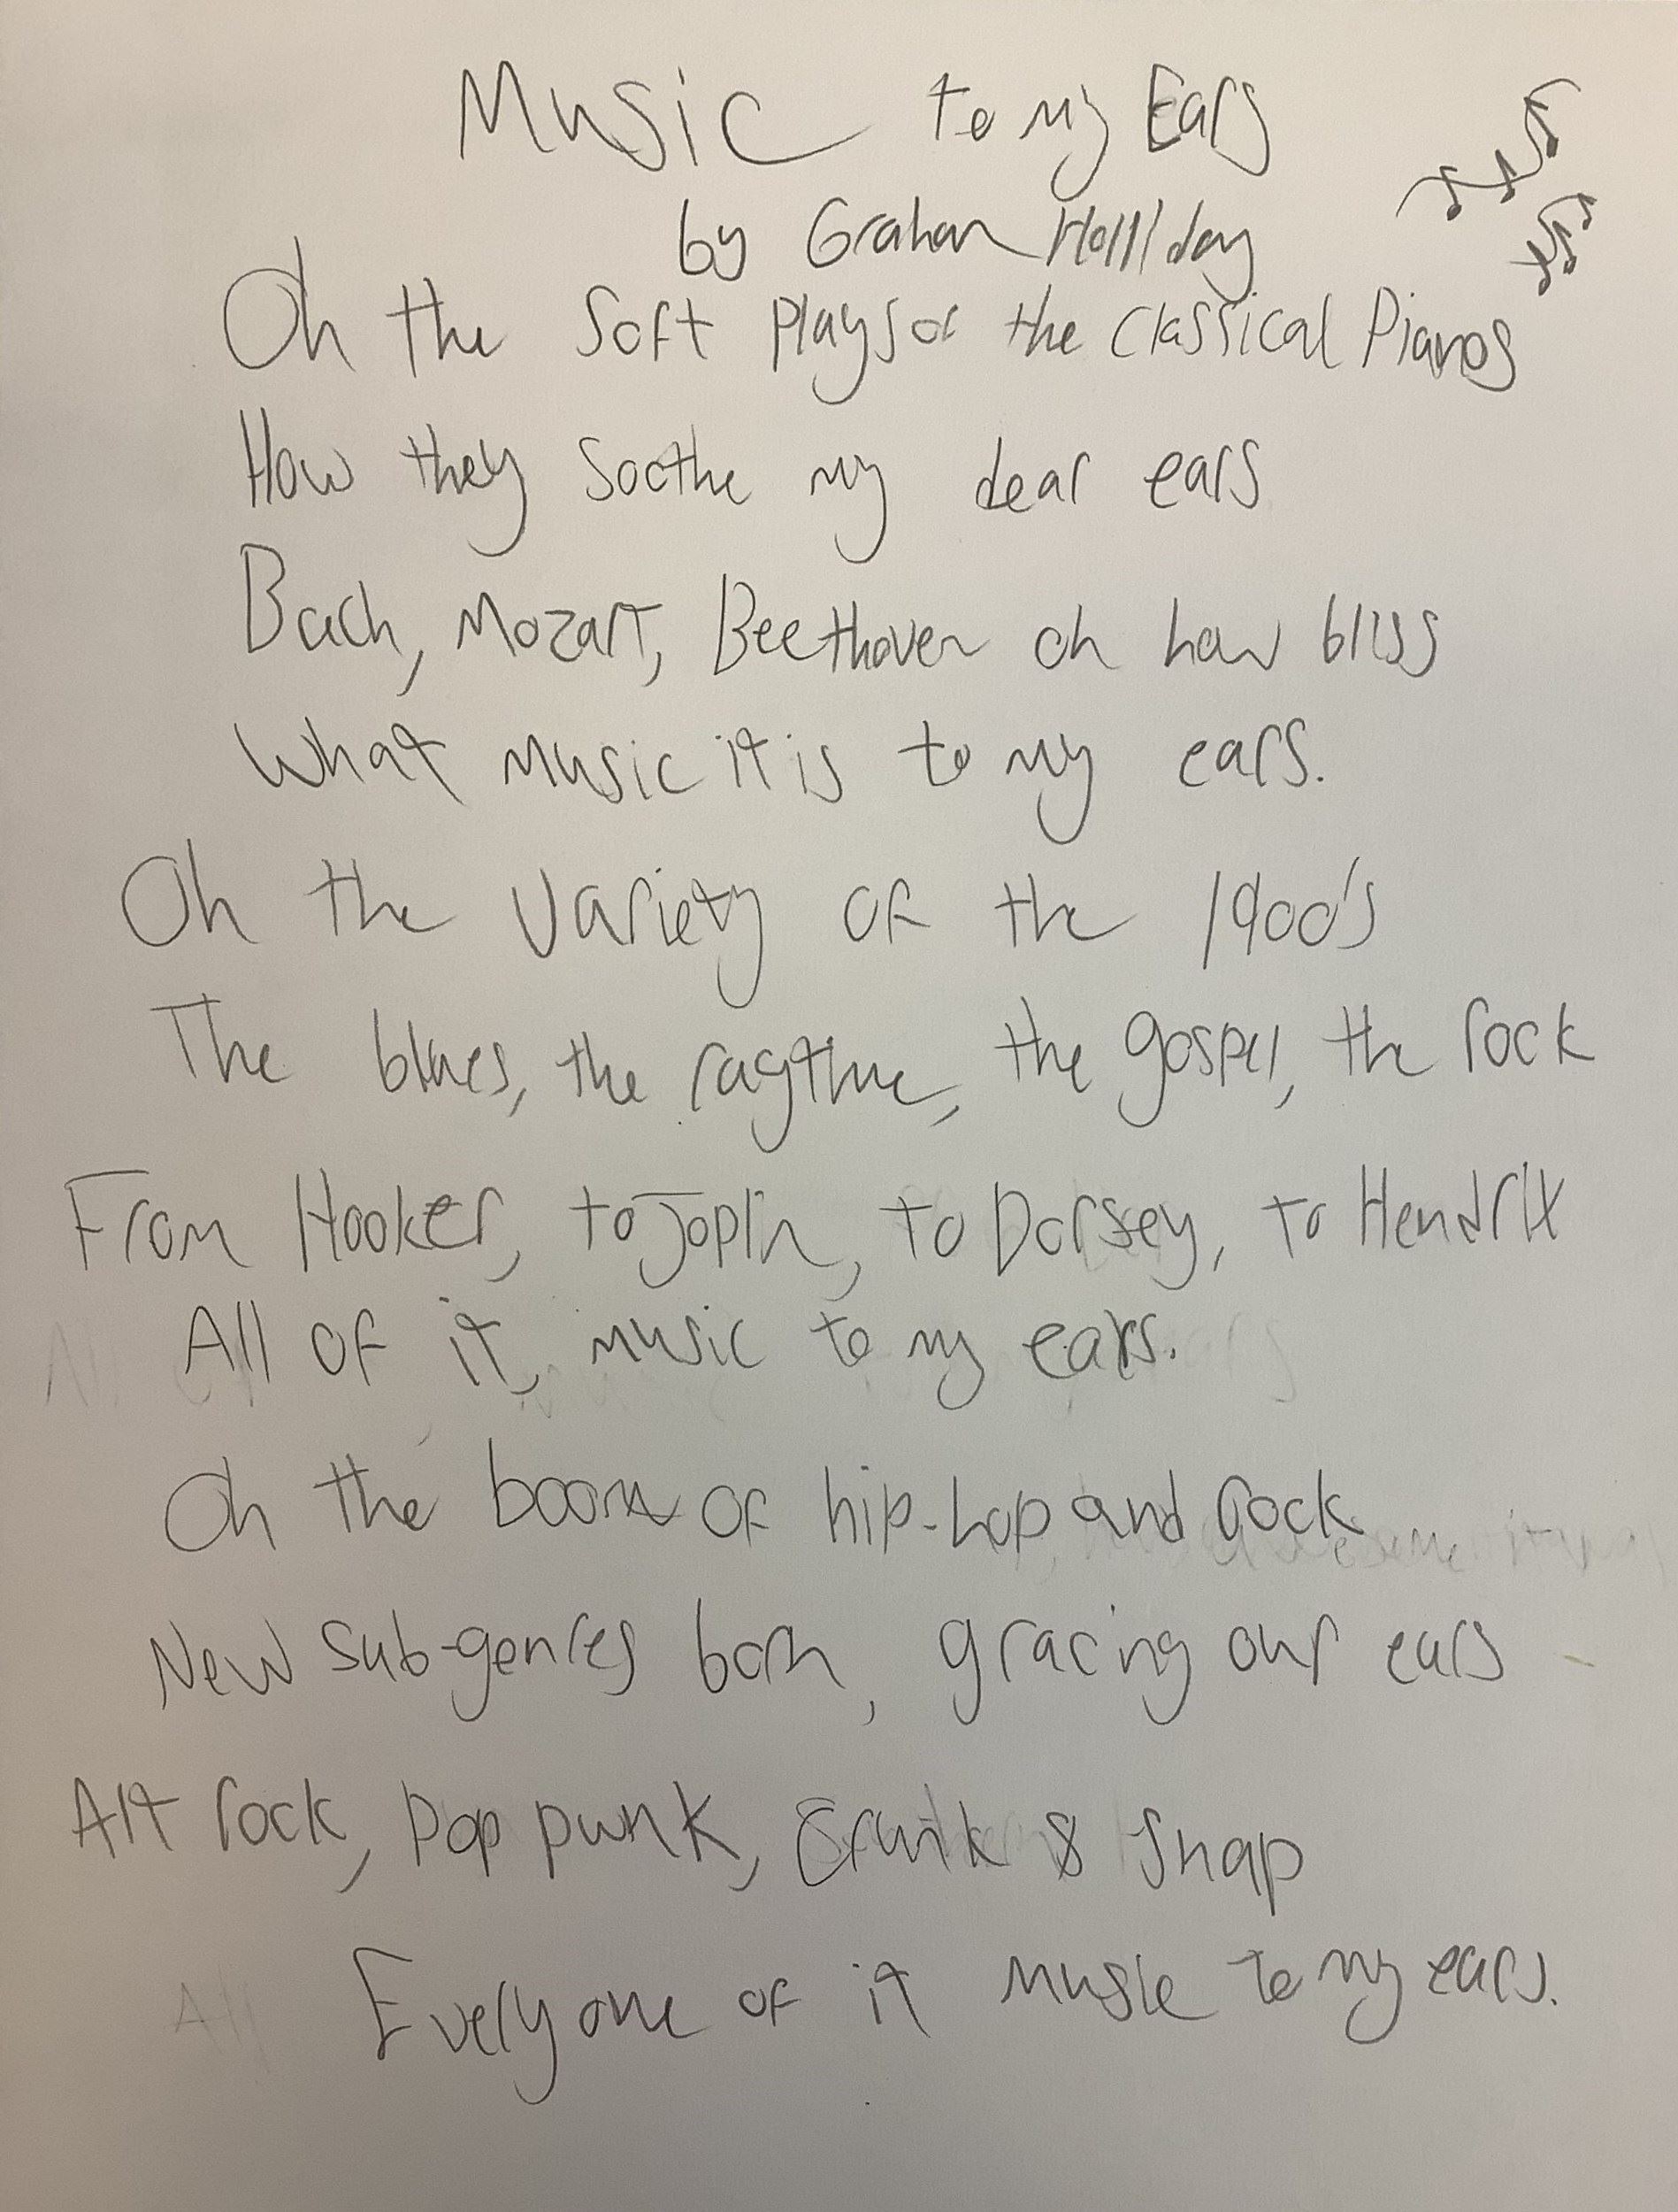 Music to my Ears
by Graham Holliday
Oh the soft plays of the classical Pianos
How they soothe my dear ears
Bach, Mozart, Beethoven oh how bliss
What music it is to my ears.
Oh the variety of the 1900's
The blues, the ragtime, the gospel, the rock
From Hooker, to Joplin, to Dorsey, to Hendrix
All of it, music to my ears.
Oh the boom of hip-hop and rock
New sub-genres born, gracing our ears
Alt rock, Pop punk, Crunk & Snap
Every one of it music to my ears.